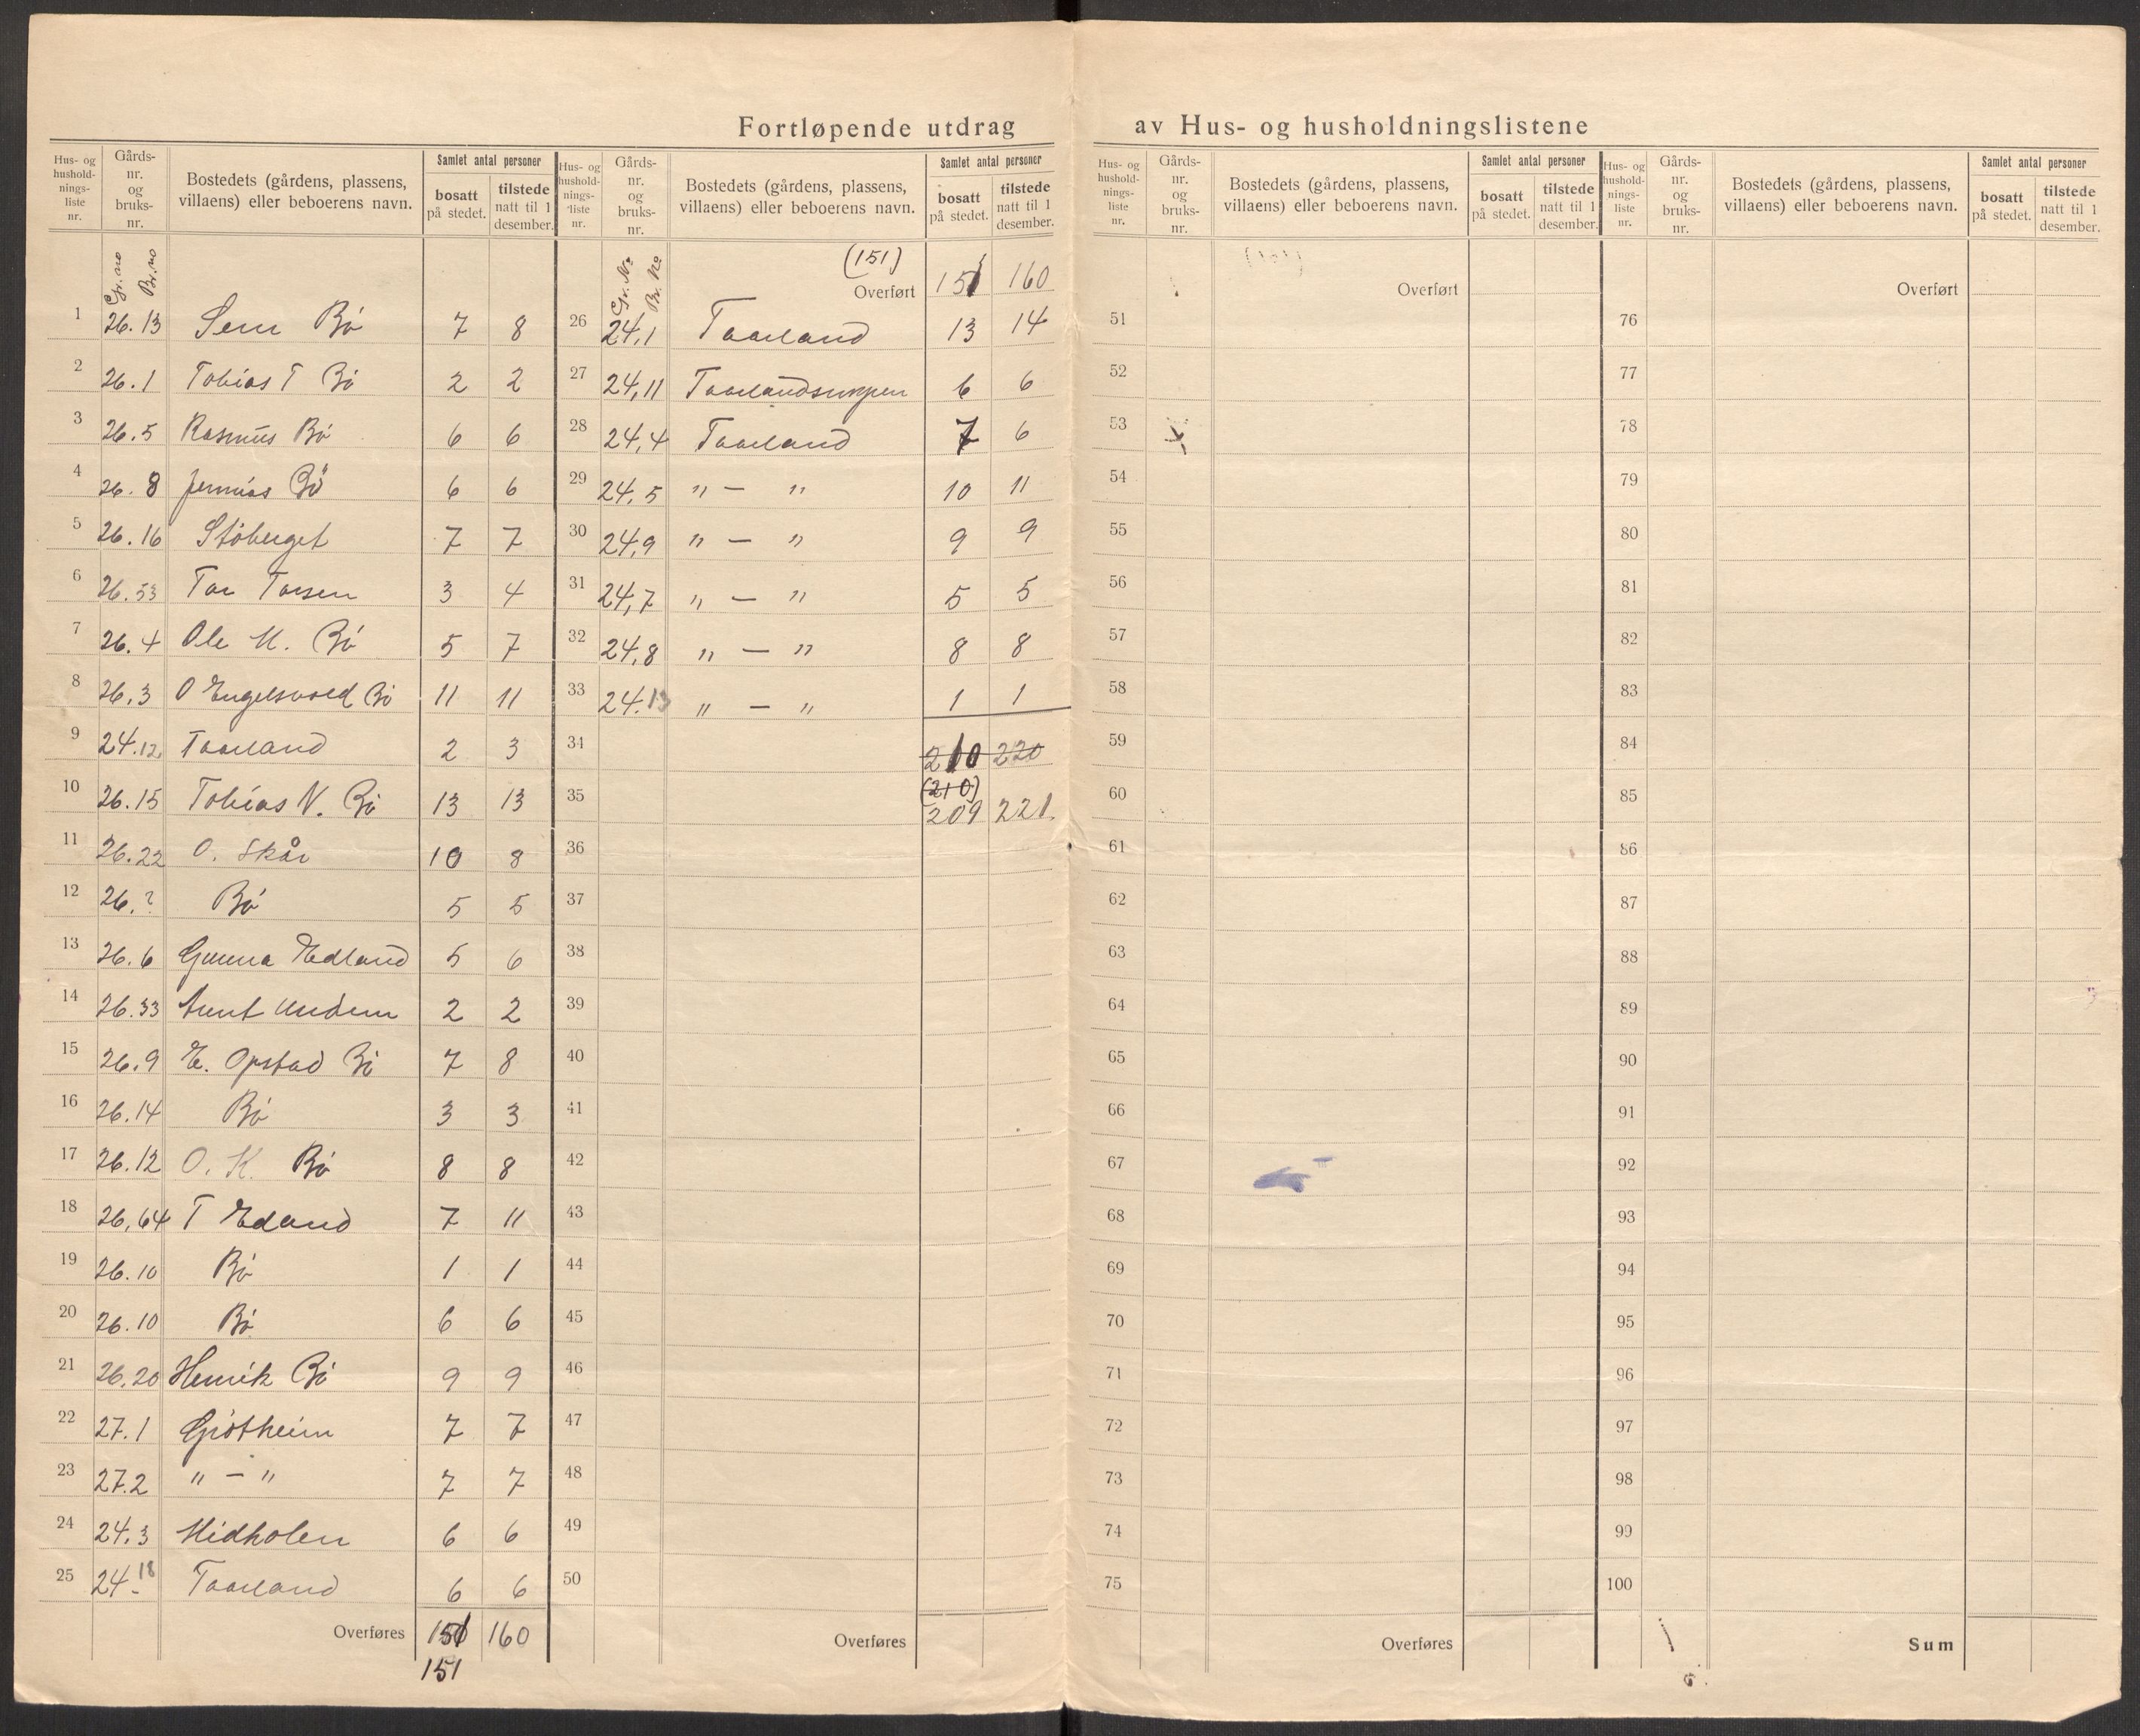 Fortløpende utdrag av Hus- og husholdningslistene
Hus- og hushold-nings-liste nr. Gårds-nr. og bruks-nr. Bostedets (gårdens, plassens, villaens) eller beboerens navn. Samlet antal personer bosatt på stedet. tilstede natt til 1 desember.
Gr. no Br. no
1 26. 13 Sem Bø 7 8
2 26. 1 Tobias T Bø 2 2
3 26. 5 Rasmus Bø 6 6
4 26. 8 Jermias Bø 6 6
5 26. 16 Støberget 7 7
6 26. 53 Tor Torsen 3 4
7 26. 4 Ole M. Bø 5 7
8 26. 3 O Engelsvold Bø 11 11
9 24. 12 Taarland 2 3
10 26. 15 Tobias N. Bø 13 13
11 26. 22 O. Skår 10 8
12 26. ? Bø 5 5
13 26. 6 Gunna Edland 5 6
14 26. 33 2 2
15 26. 9 E. Opstad Bø 7 8
16 26. 14 Bø 3 3
17 26. 12 O. K. Bø 8 8
18 26, 64 T Edland 7 11
19 26. 10 Bø 1 1
20 26. 10 Bø 6 6
21 26. 20 Henrik Bø 9 9
22 27. 1 Grøtheim 7 7
23 27. 2 " — " 7 7
24 24. 3 Midholen 6 6
25 24. 18 Taarland 6 6
Overføres 151 160
151
Hus- og hushold-nings-liste nr. Gårds-nr. og bruks-nr. Bostedets (gårdens, plassens, villaens) eller beboerens navn. Samlet antal personer bosatt på stedet. tilstede natt til 1 desember.
Gr. No Br. No
(151)
Overført 151 160
26 24, 1 Taarland 13 14
27 24, 11 6 6
28 24, 4 Taarland 7 6
29 24, 5 " — " 10 11
30 24, 9 " — " 9 9
31 24, 7 " — " 5 5
32 24, 8 " — " 8 8
33 24. 13 " — " 1 1
34 210 220
(210)
35 209 221.
36
37
38
39
40
41
42
43
44
45
46
47
48
49
50
Overføres
Hus- og hushold-nings-liste nr. Gårds-nr. og bruks-nr. Bostedets (gårdens, plassens, villaens) eller beboerens navn. Samlet antal personer bosatt på stedet. tilstede natt til 1 desember.
Overført
51
52
53
54
55
56
57
58
59
60
61
62
63
64
65
66
67
68
69
70
71
72
73
74
75
Overføres
Hus- og hushold-nings-liste nr. Gårds-nr. og bruks-nr. Bostedets (gårdens, plassens, villaens) eller beboerens navn. Samlet antal personer bosatt på stedet. tilstede natt til 1 desember.
Overført
76
77
78
79
80
81
82
83
84
85
86
87
88
89
90
91
92
93
94
95
96
97
98
99
100
Sum